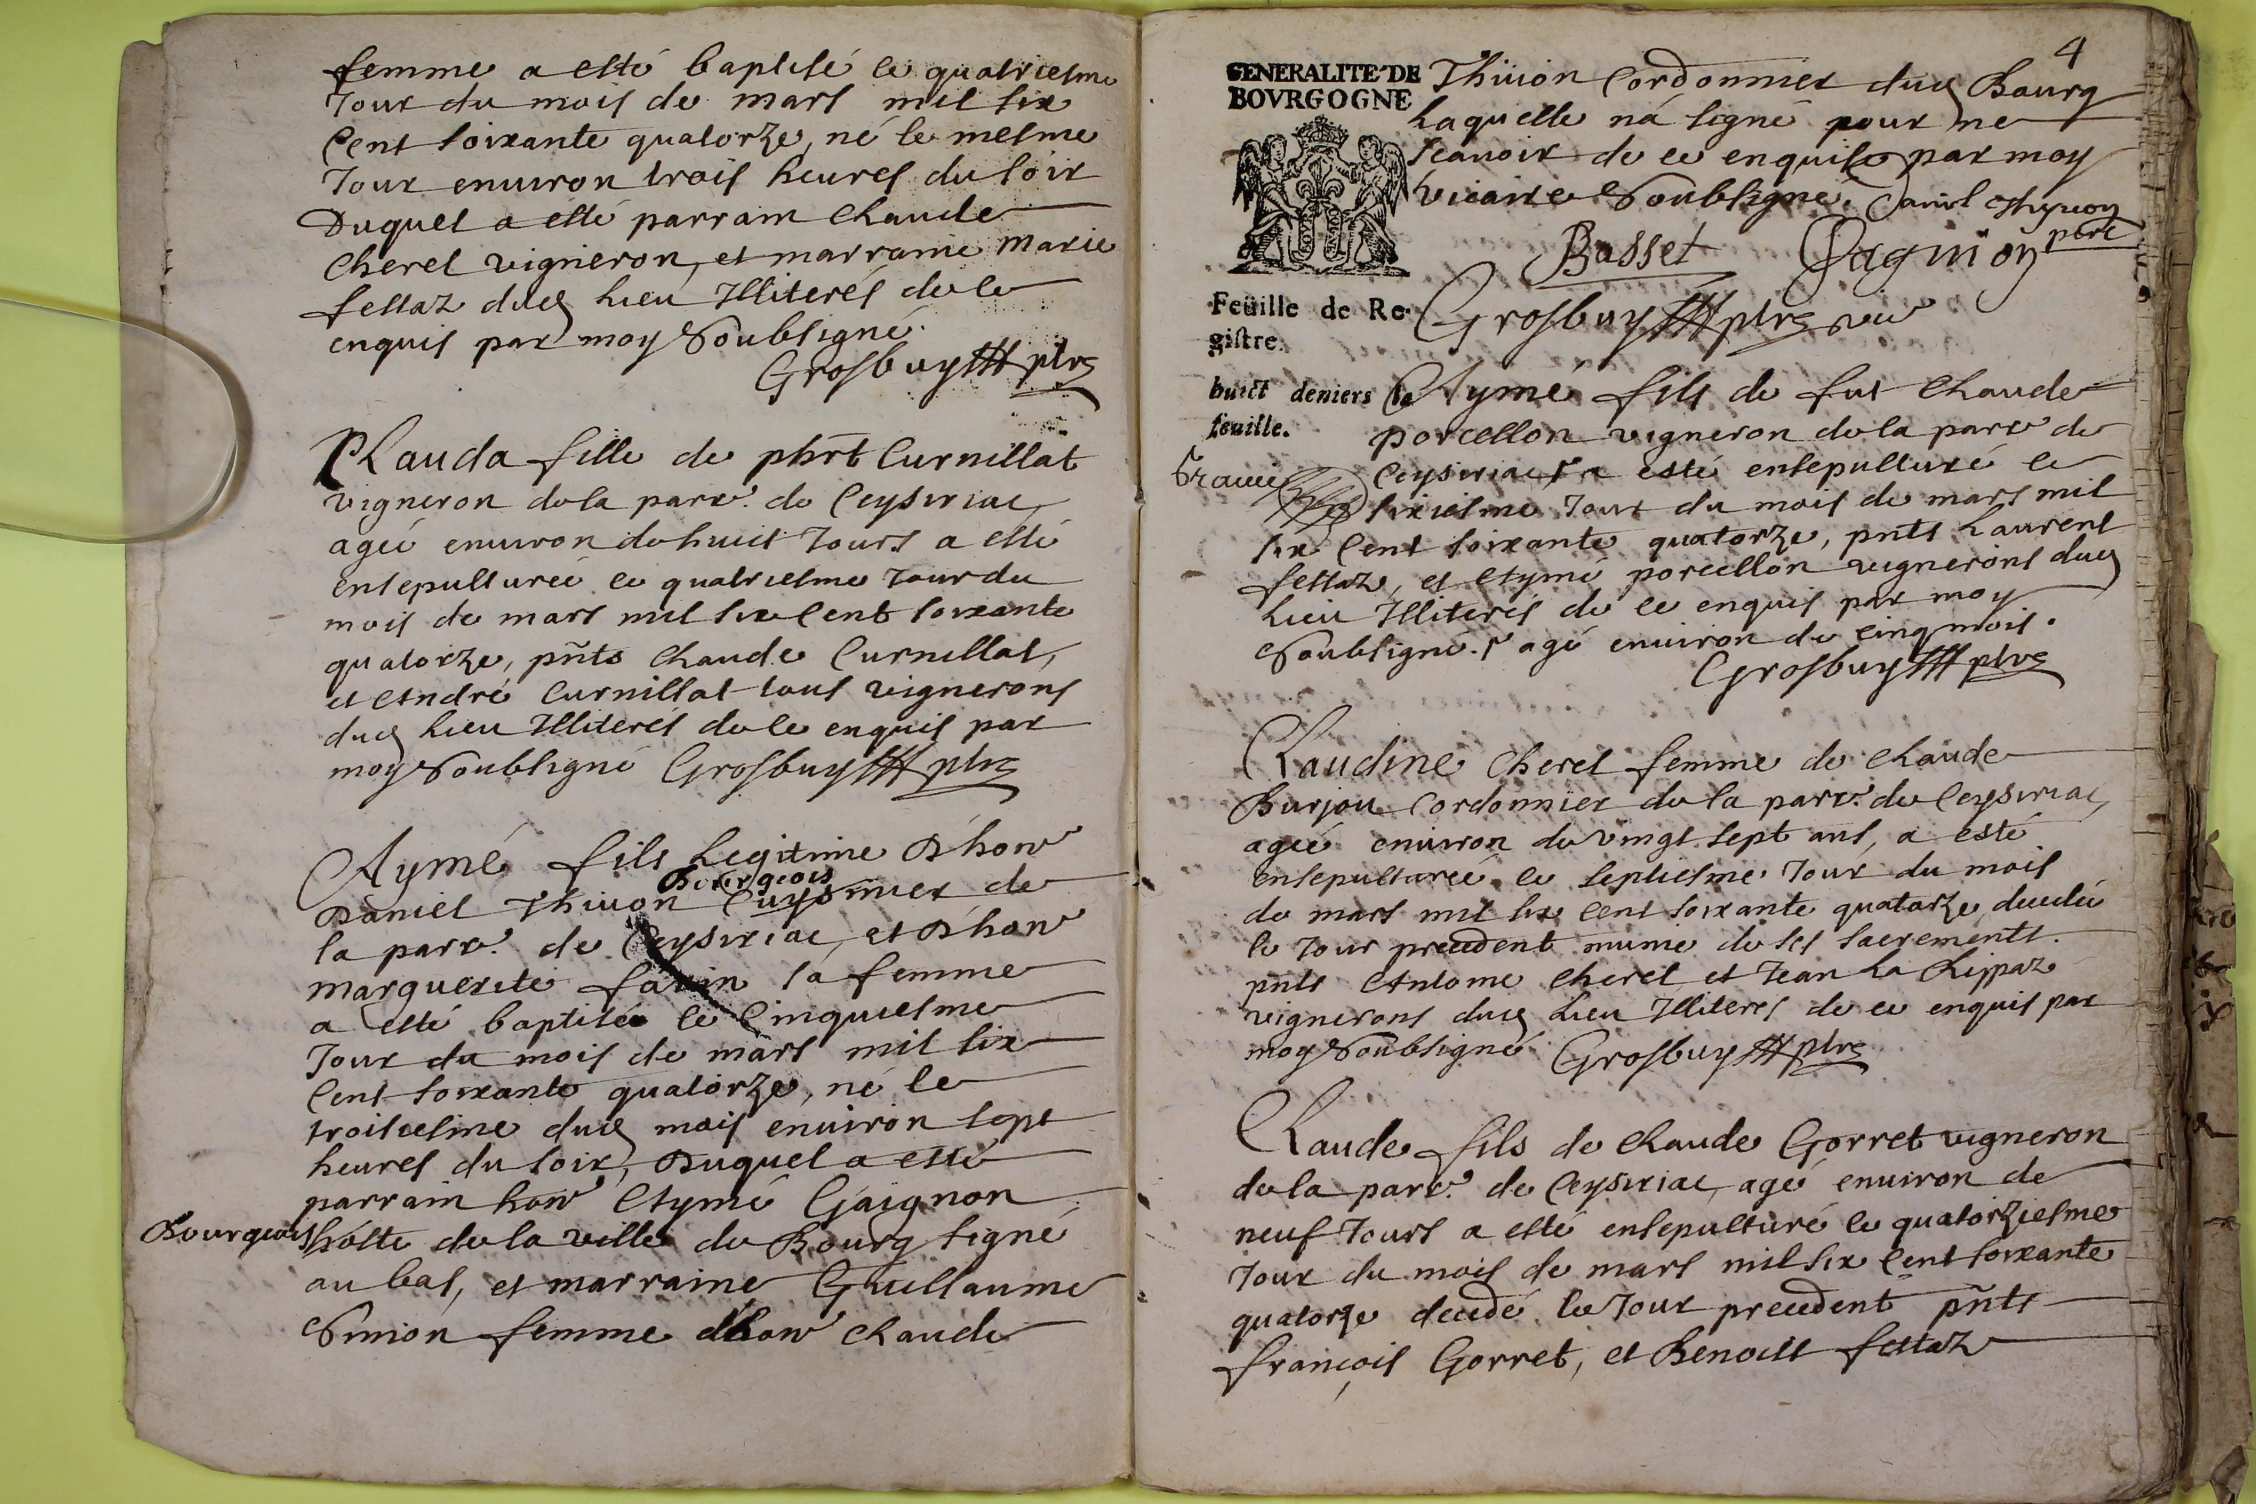 femme a esté baptisé le quatriesme
Jour du mois de mars mil six
Cent soixante quatorze, né le mesme
Jour enuiron trois heures du soir
Duquel a esté parrain Claude
Cherel vigneron, et marraine Marie
fettaz dud lieu Illiterés de ce
enquis par moy Soubsigné.
Grosbuy ptre
Clauda fille de phrt Curnillat
vigneron de la parr. de Ceysiriac
agée enuiron de huict Jours a esté
ensepulturée le quatriesme Jour du
mois de mars mil six Cent soixante
quatorze, pñts Claude Curnillat,
et André Curnillat tous vignerons
dud lieu Illiterés de ce enquis par
moy Soubsigné Grosbuy ptre
Aymé fils Legitime d'hon
Bourgeois
Daniel Thiuon de
la parr. de Ceysiriac, et d'hon
marguerite sa femme
a esté baptisé le Cinquiesme
Jour du mois de mars mil six
Cent soixante quatorze, né le
troisiesme dud mois enuiron sept
heures du soir, Duquel a esté
parrain hon Aymé Gaignon
Bourgeois hoste de la ville de Bourg signé
au bas, et marraine Guillaume
Simion femme d'hon Claude
4
GENERALITE DE
BOVRGOGNE
Thiuion Cordonnier dud Bourg
Laquelle n'a signé pour ne
scauoir de ce enquise par moy
vicaire Soubsigné. Daniel Thyuon
Basset Gagnion pñt
Grosbuy ptre vic
Feüille de Re-
gistre.
huict deniers la
feuille.
Aymé fils de fut Claude
porcellon vigneron de la parr. de
Ceysiriac a esté ensepulturé le
sixiesme Jour du mois de mars mil
six Cent soixante quatorze, pnts Laurent
fettaz, et Aymé porcellon vignerons dud
lieu Illiterés de ce enquis par moy
Soubsigné. agé enuiron de cinq mois.
Grosbuy ptre
Claudine Cherel femme de Claude
Burjou Cordonnier de la parr. de Ceysiriac,
agée enuiron de vingt sept ans, a esté
ensepulturée le septiesme Jour du mois
de mars mil six Cent soixante quatorze, decedée
le Jour precedent munie de ses sacrements.
pnts Antoine Cherel et Jean La Lippaz
vignerons dud lieu Illiterés de ce enquis par
moy Soubsigné Grosbuy ptre
Claude fils de Claude Gorret vigneron
de la parr. de Ceysiriac, agé enuiron de
neuf Jours a esté ensepulturé le quatorziesme
Jour du mois de mars mil six Cent soixante
quatorze decedé le Jour precedent pñts
françois Gorret, et Benoist fettaz